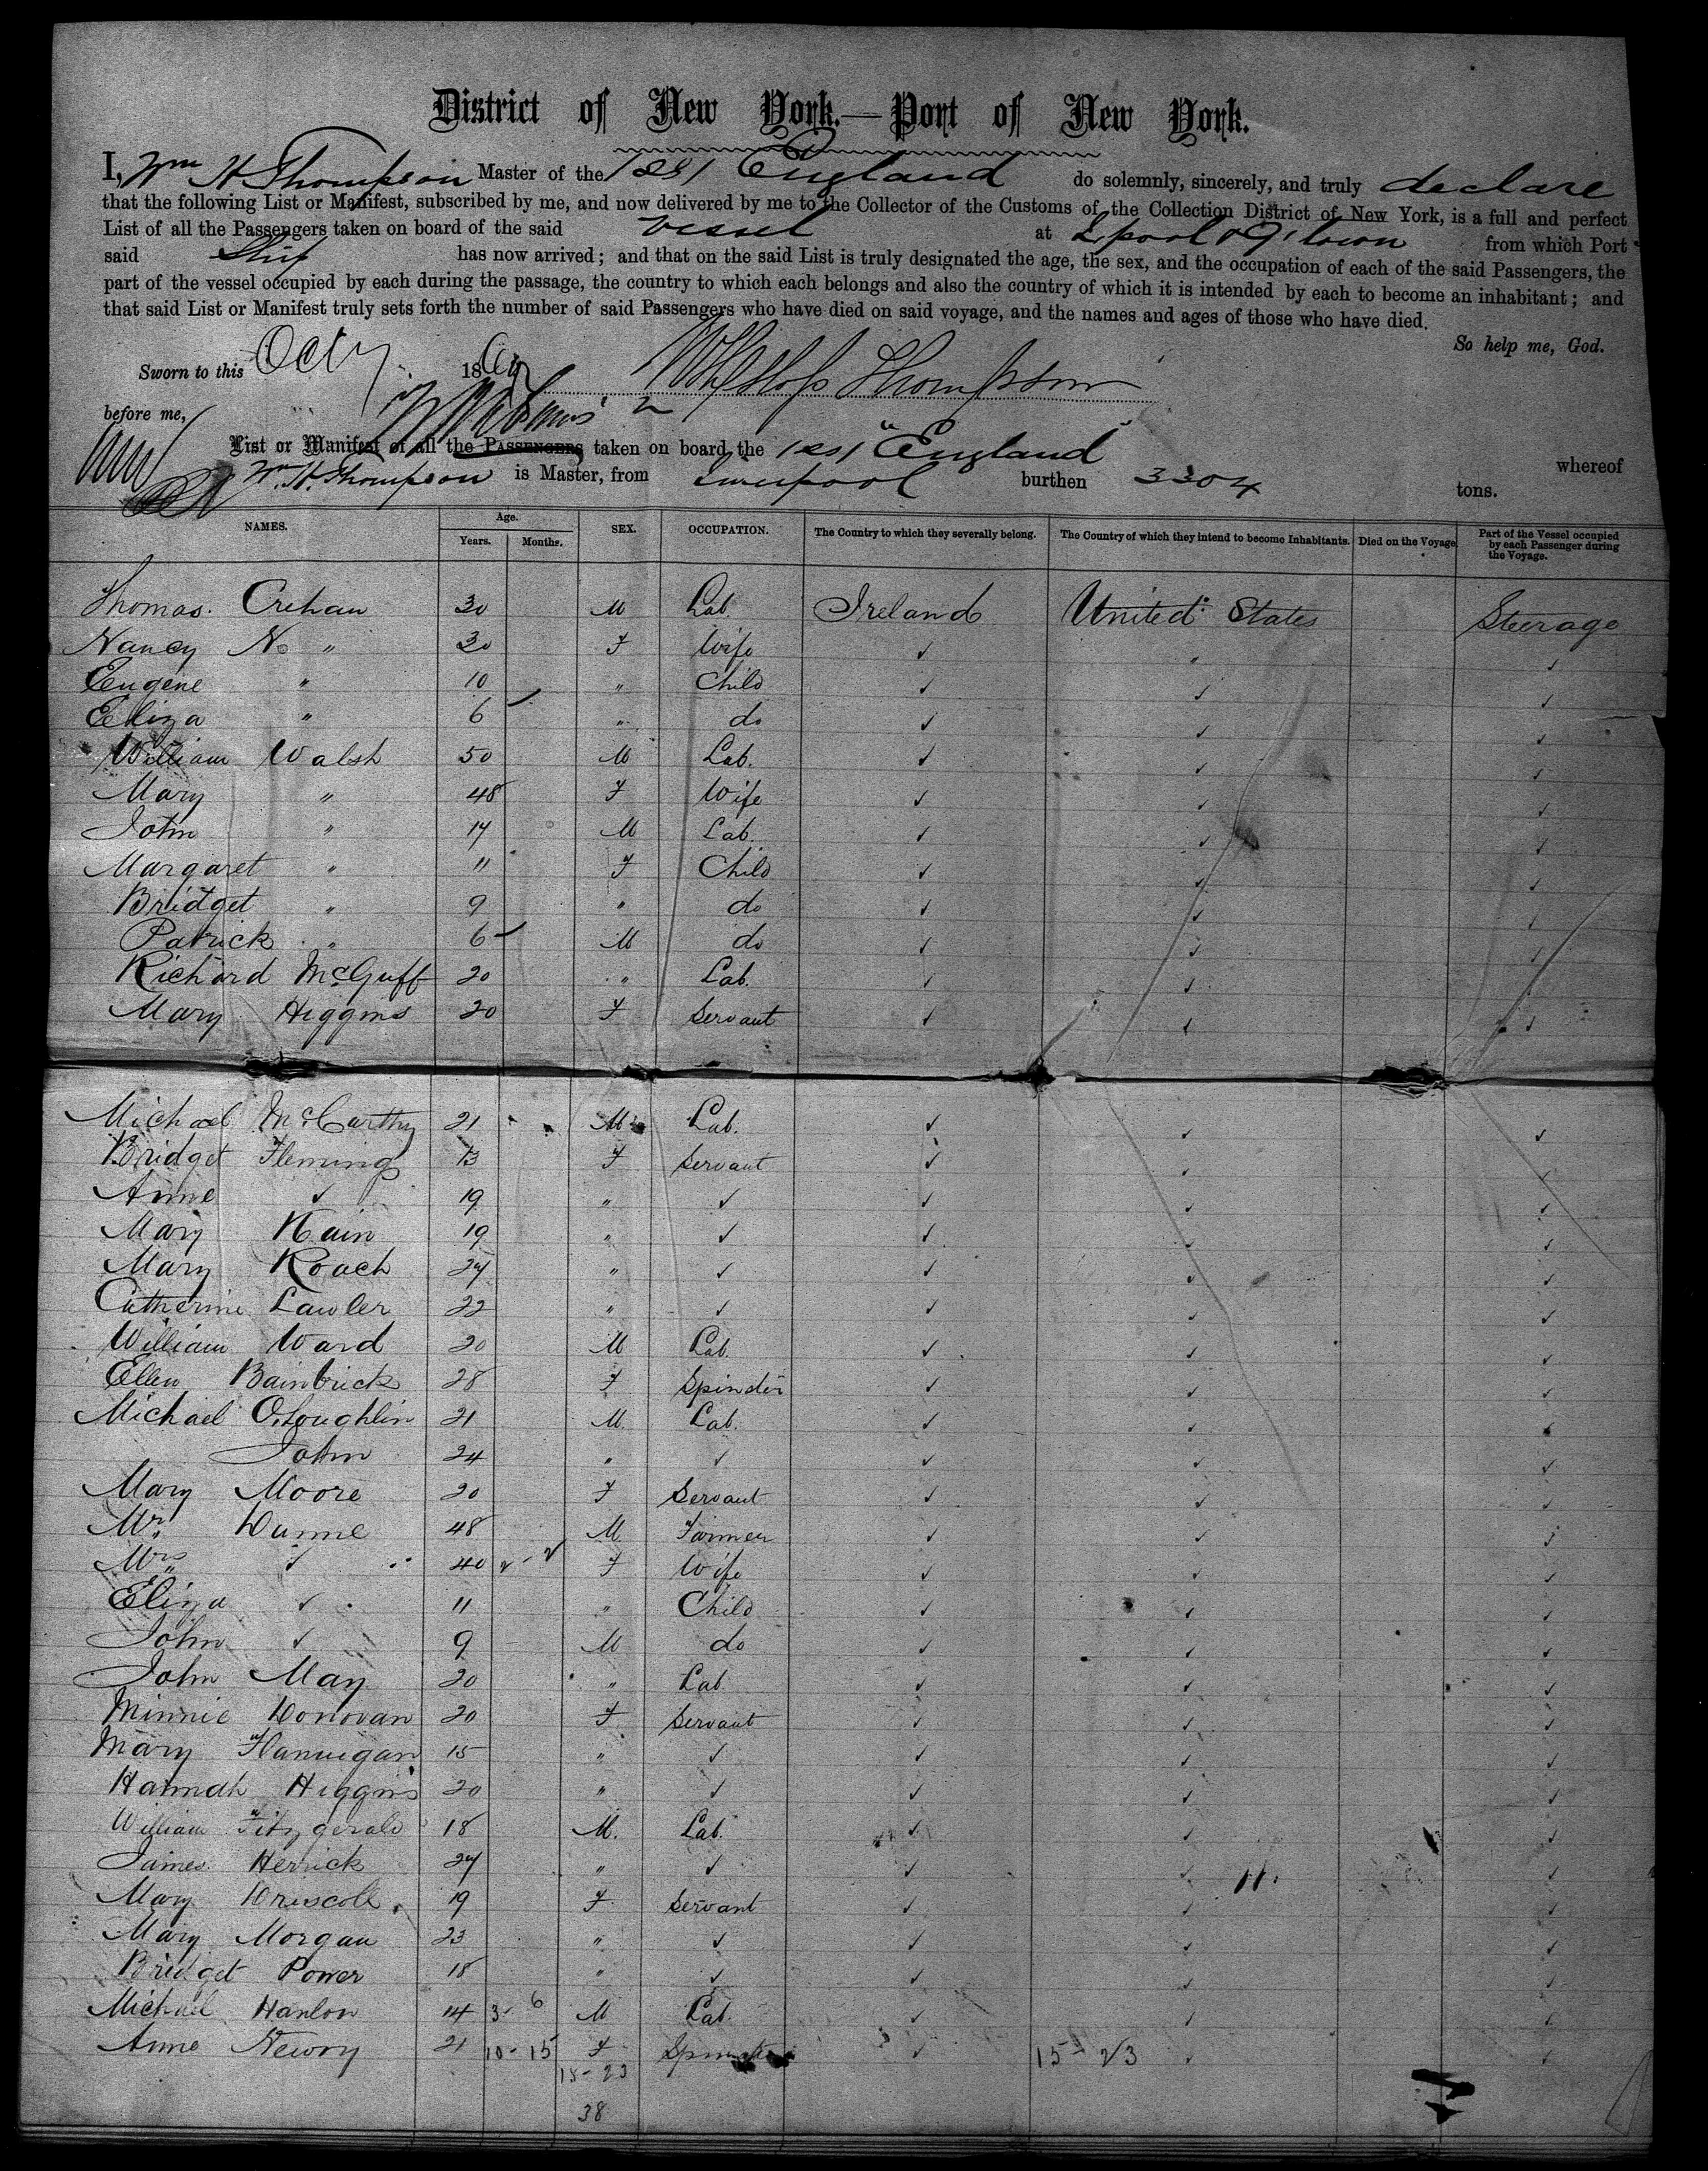 District of New York.—Port of New York.
I, Wm H Thompson Master of the England do solemnly, sincerely, and truly declare
that the following List or Manifest, subscribed by me, and now delivered by me to the Collector of the Customs of the Collection District of New York, is a full and perfect
List of all the Passengers taken on board of the said Vessel at L'pool & Q'town from which Port
said Ship has now arrived; and that on the said List is truly designated the age, the sex, and the occupation of each of the said Passengers, the
part of the vessel occupied by each during the passage, the country to which each belongs and also the country of which it is intended by each to become an inhabitant; and
that said List or Manifest truly sets forth the number of said Passengers who have died on said voyage, and the names and ages of those who have died.
So help me, God.
Sworn to this Oct 18 Thompson
before me,
List or Manifest of all the Passengers taken on board the "England" whereof
Wm. H. Thompson is Master, from Liverpool burthen 3304 tons.
NAMES. Age. Years. Months. SEX. OCCUPATION. The Country to which they severally belong. The Country of which they intend to become Inhabitants. Died on the Voyage. Part of the Vessel occupied by each Passenger during the Voyage.
Thomas Crehan 30 M Lab Ireland United States Steerage
Nancy N. " 30 F Wife ✓ " ✓
Eugene " 10 " Child ✓ ✓ ✓
Eliza " 6 " do ✓ ✓ ✓
William Walsh 50 M Lab. ✓ ✓ ✓
Mary " 48 F Wife ✓ ✓ ✓
John " 14 M Lab. ✓ ✓ ✓
Margaret " 11 F Child ✓ ✓ ✓
Bridget " 9 " do ✓ ✓ ✓
Patrick " 6 M do ✓ ✓ ✓
Richard McGuff 20 " Lab. ✓ ✓ ✓
Mary Higgins 20 F Servant ✓ ✓ ✓
Michael McCarthy 21 M Lab. ✓ ✓ ✓
Bridget Fleming 13 F Servant ✓ ✓ ✓
Anne ✓ 19 " ✓ ✓ ✓ ✓
Mary Kain 19 " ✓ ✓ ✓ ✓
Mary Roach 24 " ✓ ✓ ✓ ✓
Catherine Lawler 22 " ✓ ✓ ✓ ✓
William Ward 20 M Lab. ✓ ✓ ✓
Ellen Bainbrick 28 F ✓ ✓ ✓
Michael O'Loughlin 21 M Lab. ✓ ✓ ✓
John 24 " ✓ ✓ ✓ ✓
Mary Moore 20 F Servant ✓ ✓ ✓
Mr. Dunne 48 M Farmer ✓ ✓ ✓
Mrs ✓ 40 F Wife ✓ ✓ ✓
Eliza ✓ 11 " Child ✓ ✓ ✓
John ✓ 9 M do ✓ ✓ ✓
John May 20 " Lab. ✓ ✓ ✓
Minnie Donovan 20 F Servant ✓ ✓ ✓
Mary Flannigan 15 " ✓ ✓ ✓ ✓
Hannah Higgins 20 " ✓ ✓ ✓ ✓
William Fitzgerald 18 M. Lab. ✓ ✓ ✓
James Herrick 24 " ✓ ✓ ✓ ✓
Mary Driscoll 19 F Servant ✓ ✓ ✓
Mary Morgan 23 " ✓ ✓ ✓ ✓
Bridget Power 18 " ✓ ✓ ✓ ✓
Michael Hanlon 14 3- 6 M Lab. ✓ ✓ ✓
Anne Newry 21 10- 15 F ✓ 15- 23 ✓ ✓
15- 23
38